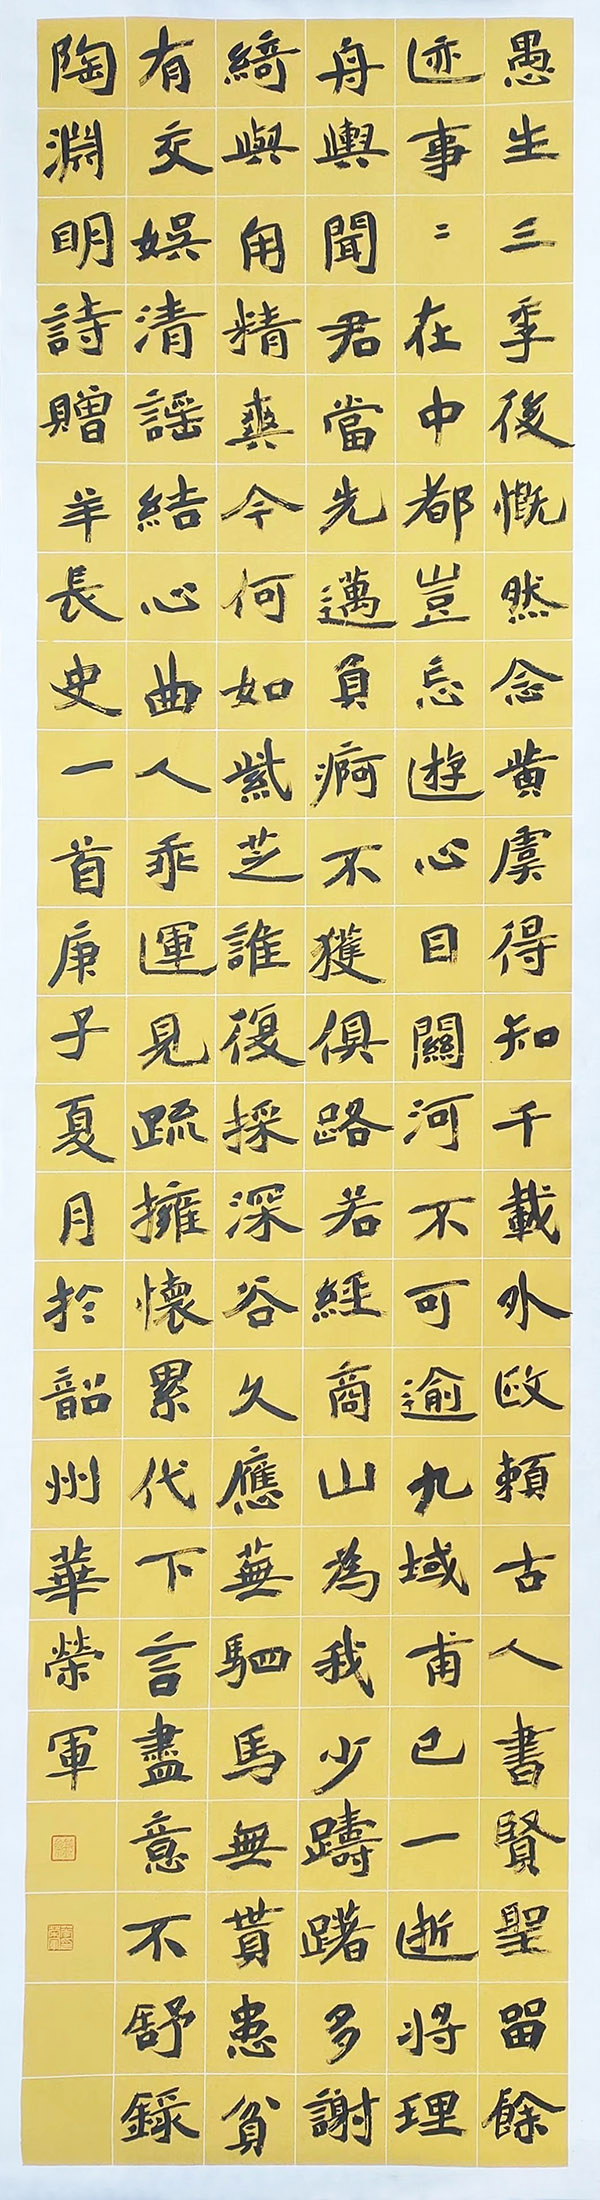 愚生三季後慨然念黄虞得知千載外政賴古人書賢聖留餘
迹事〻在中都豈忘遊心目關河不可逾九域甫已一逝将理
舟輿聞君當先邁負痾不獲俱路若經商山為我少躊躇多謝
綺與甪精爽今何如紫芝誰復採深谷久應蕪駟馬無貰患貧
有交娛清謡結心曲人乖運見疏擁懷累代下言盡意不舒錄
陶淵明詩贈羊長史一首庚子夏月於韶州華榮軍